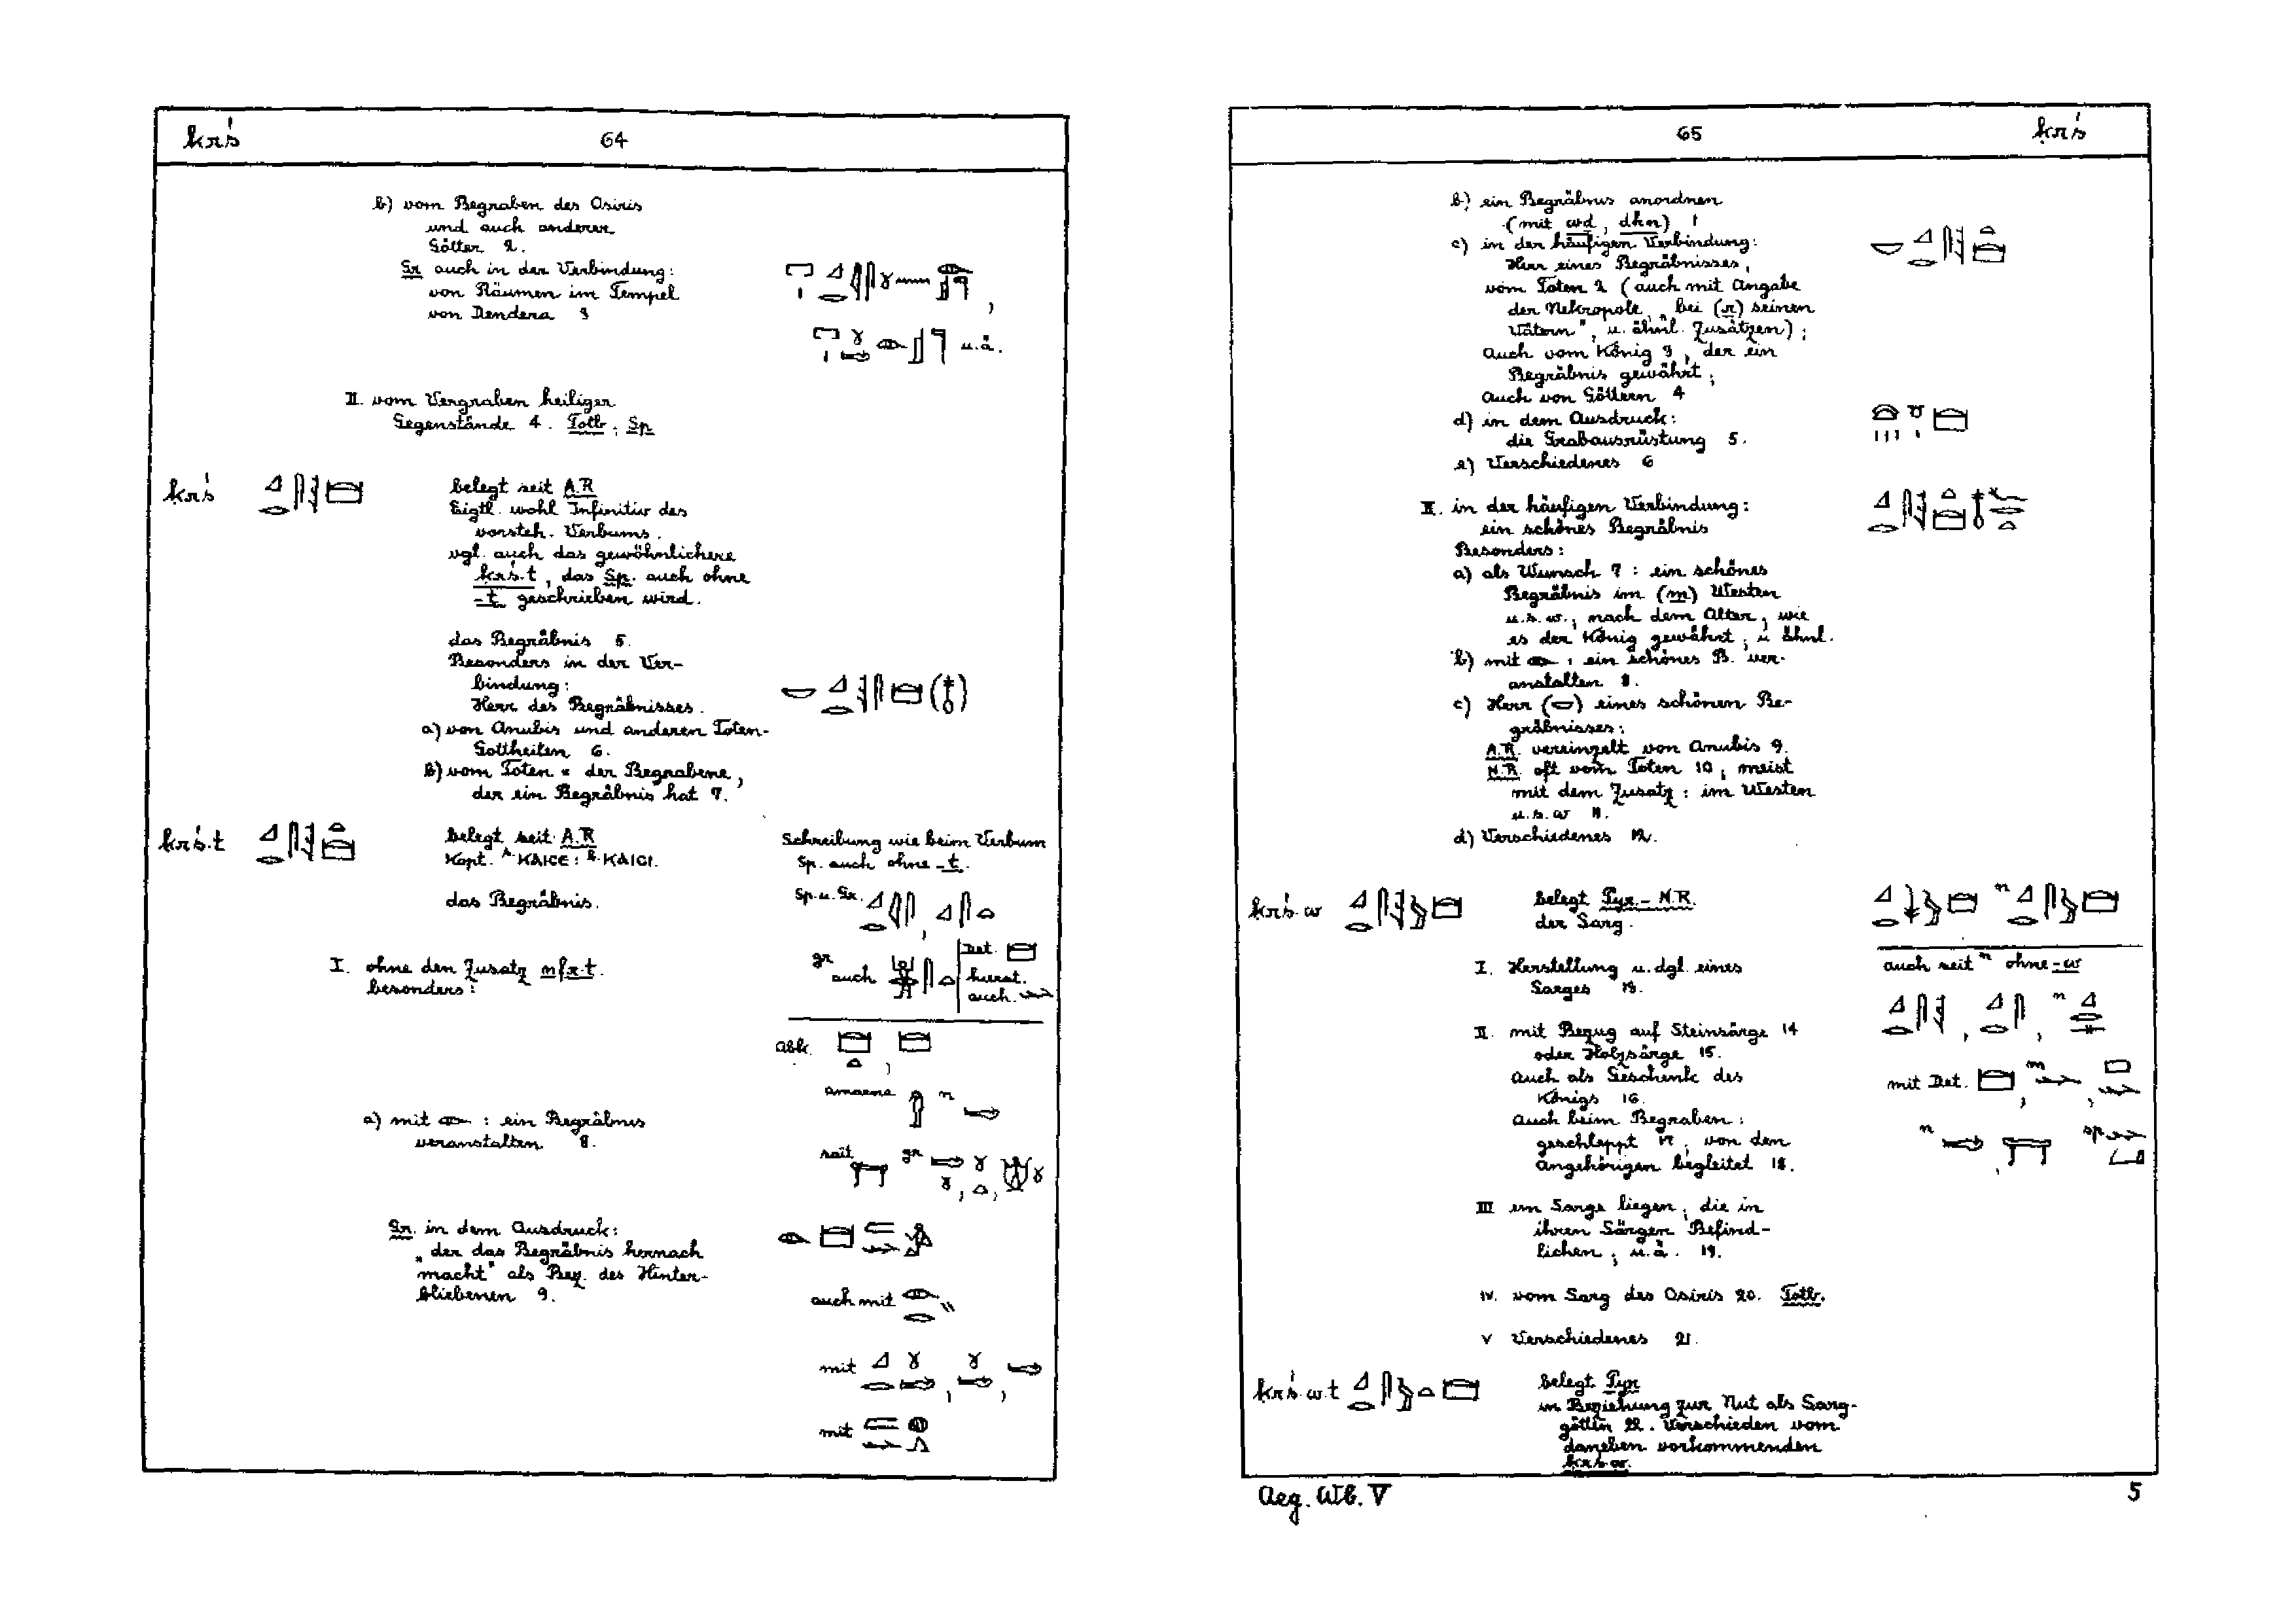 ḳrś 64
b) vom Begraben des Osiris
und auch anderer
Götter 2.
Gr. auch in der Verbindung:
von Räumen im Tempel
von Dendera 3
u.ä.
II. vom Vergraben heiliger
Gegenstände 4. Totb.; Sp.
ḳrś
belegt seit A.R.
Eigtl. wohl Infinitiv des
vorsteh. Verbums.
vgl. auch das gewöhnlichere
ḳrś.t, das Sp. auch ohne
-t geschrieben wird.
das Begräbnis 5.
Besonders in der Ver-
bindung:
Herr des Begräbnisses.
a) von Anubis und anderen Toten-
Gottheiten 6.
b) vom Toten = der Begrabene,
der ein Begräbnis hat 7.
ḳrś.t
belegt seit A.R.
Kopt. A. KAICE: B. KAICI.
das Begräbnis.
Schreibung wie beim Verbum
Sp. auch ohne -t.
Sp. u. Gr.
gr auch
Det.
kurat.
auch
I. ohne den Zusatz nfr.t.
besonders:
abk.
Amarna n
a) mit : ein Begräbnis
veranstalten 8.
sait gr
Gr. in dem Ausdruck:
„der das Begräbnis hernach
macht" als Bez. des Hinter-
bliebenen 9.
auch mit
mit
mit
65 ḳrś
b) ein Begräbnis anordnen
(mit wḏ, dhn) 1
c) in der häufigen Verbindung:
Herr eines Begräbnisses,
vom Toten 2 (auch mit Angabe
der Nekropole, „bei (r) seinen
Vätern", u. ähnl. Zusätzen);
Auch vom König 3, der ein
Begräbnis gewährt;
Auch von Göttern 4
d) in dem Ausdruck:
die Grabausrüstung 5.
e) Verschiedenes 6
II. in der häufigen Verbindung:
ein schönes Begräbnis
Besonders:
a) als Wunsch 7 : ein schönes
Begräbnis im (m) Westen
u.s.w., nach dem Alter, wie
es der König gewährt, u. ähnl.
b) mit : ein schönes B. ver-
anstalten 8.
c) Herr ( ) eines schönen Be-
gräbnisses:
A.R. vereinzelt von Anubis 9.
N.R. oft vom Toten 10, meist
mit dem Zusatz: im Westen
u.s.w 11.
d) Verschiedenes 12.
ḳrś.w
belegt Pyr. - N.R.
der Sarg.
I. Herstellung u. dgl. eines
Sarges 13.
auch seit n ohne -w
II. mit Bezug auf Steinsärge 14
oder Holzsärge 15.
Auch als Geschenk des
Königs 16.
Auch beim Begraben:
geschleppt 17, von den
Angehörigen begleitet 18.
mit Det.
n sp
III im Sarge liegen, die in
ihren Särgen Befind-
lichen, u.ä. 19.
IV. vom Sarg des Osiris 20. Totb.
V Verschiedenes 21.
ḳrś.w.t
belegt Pyr.
in Beziehung zur Nut als Sarg-
göttin 22. Verschieden vom
daneben vorkommenden
ḳrś.w.
Aeg. Wb. V 5